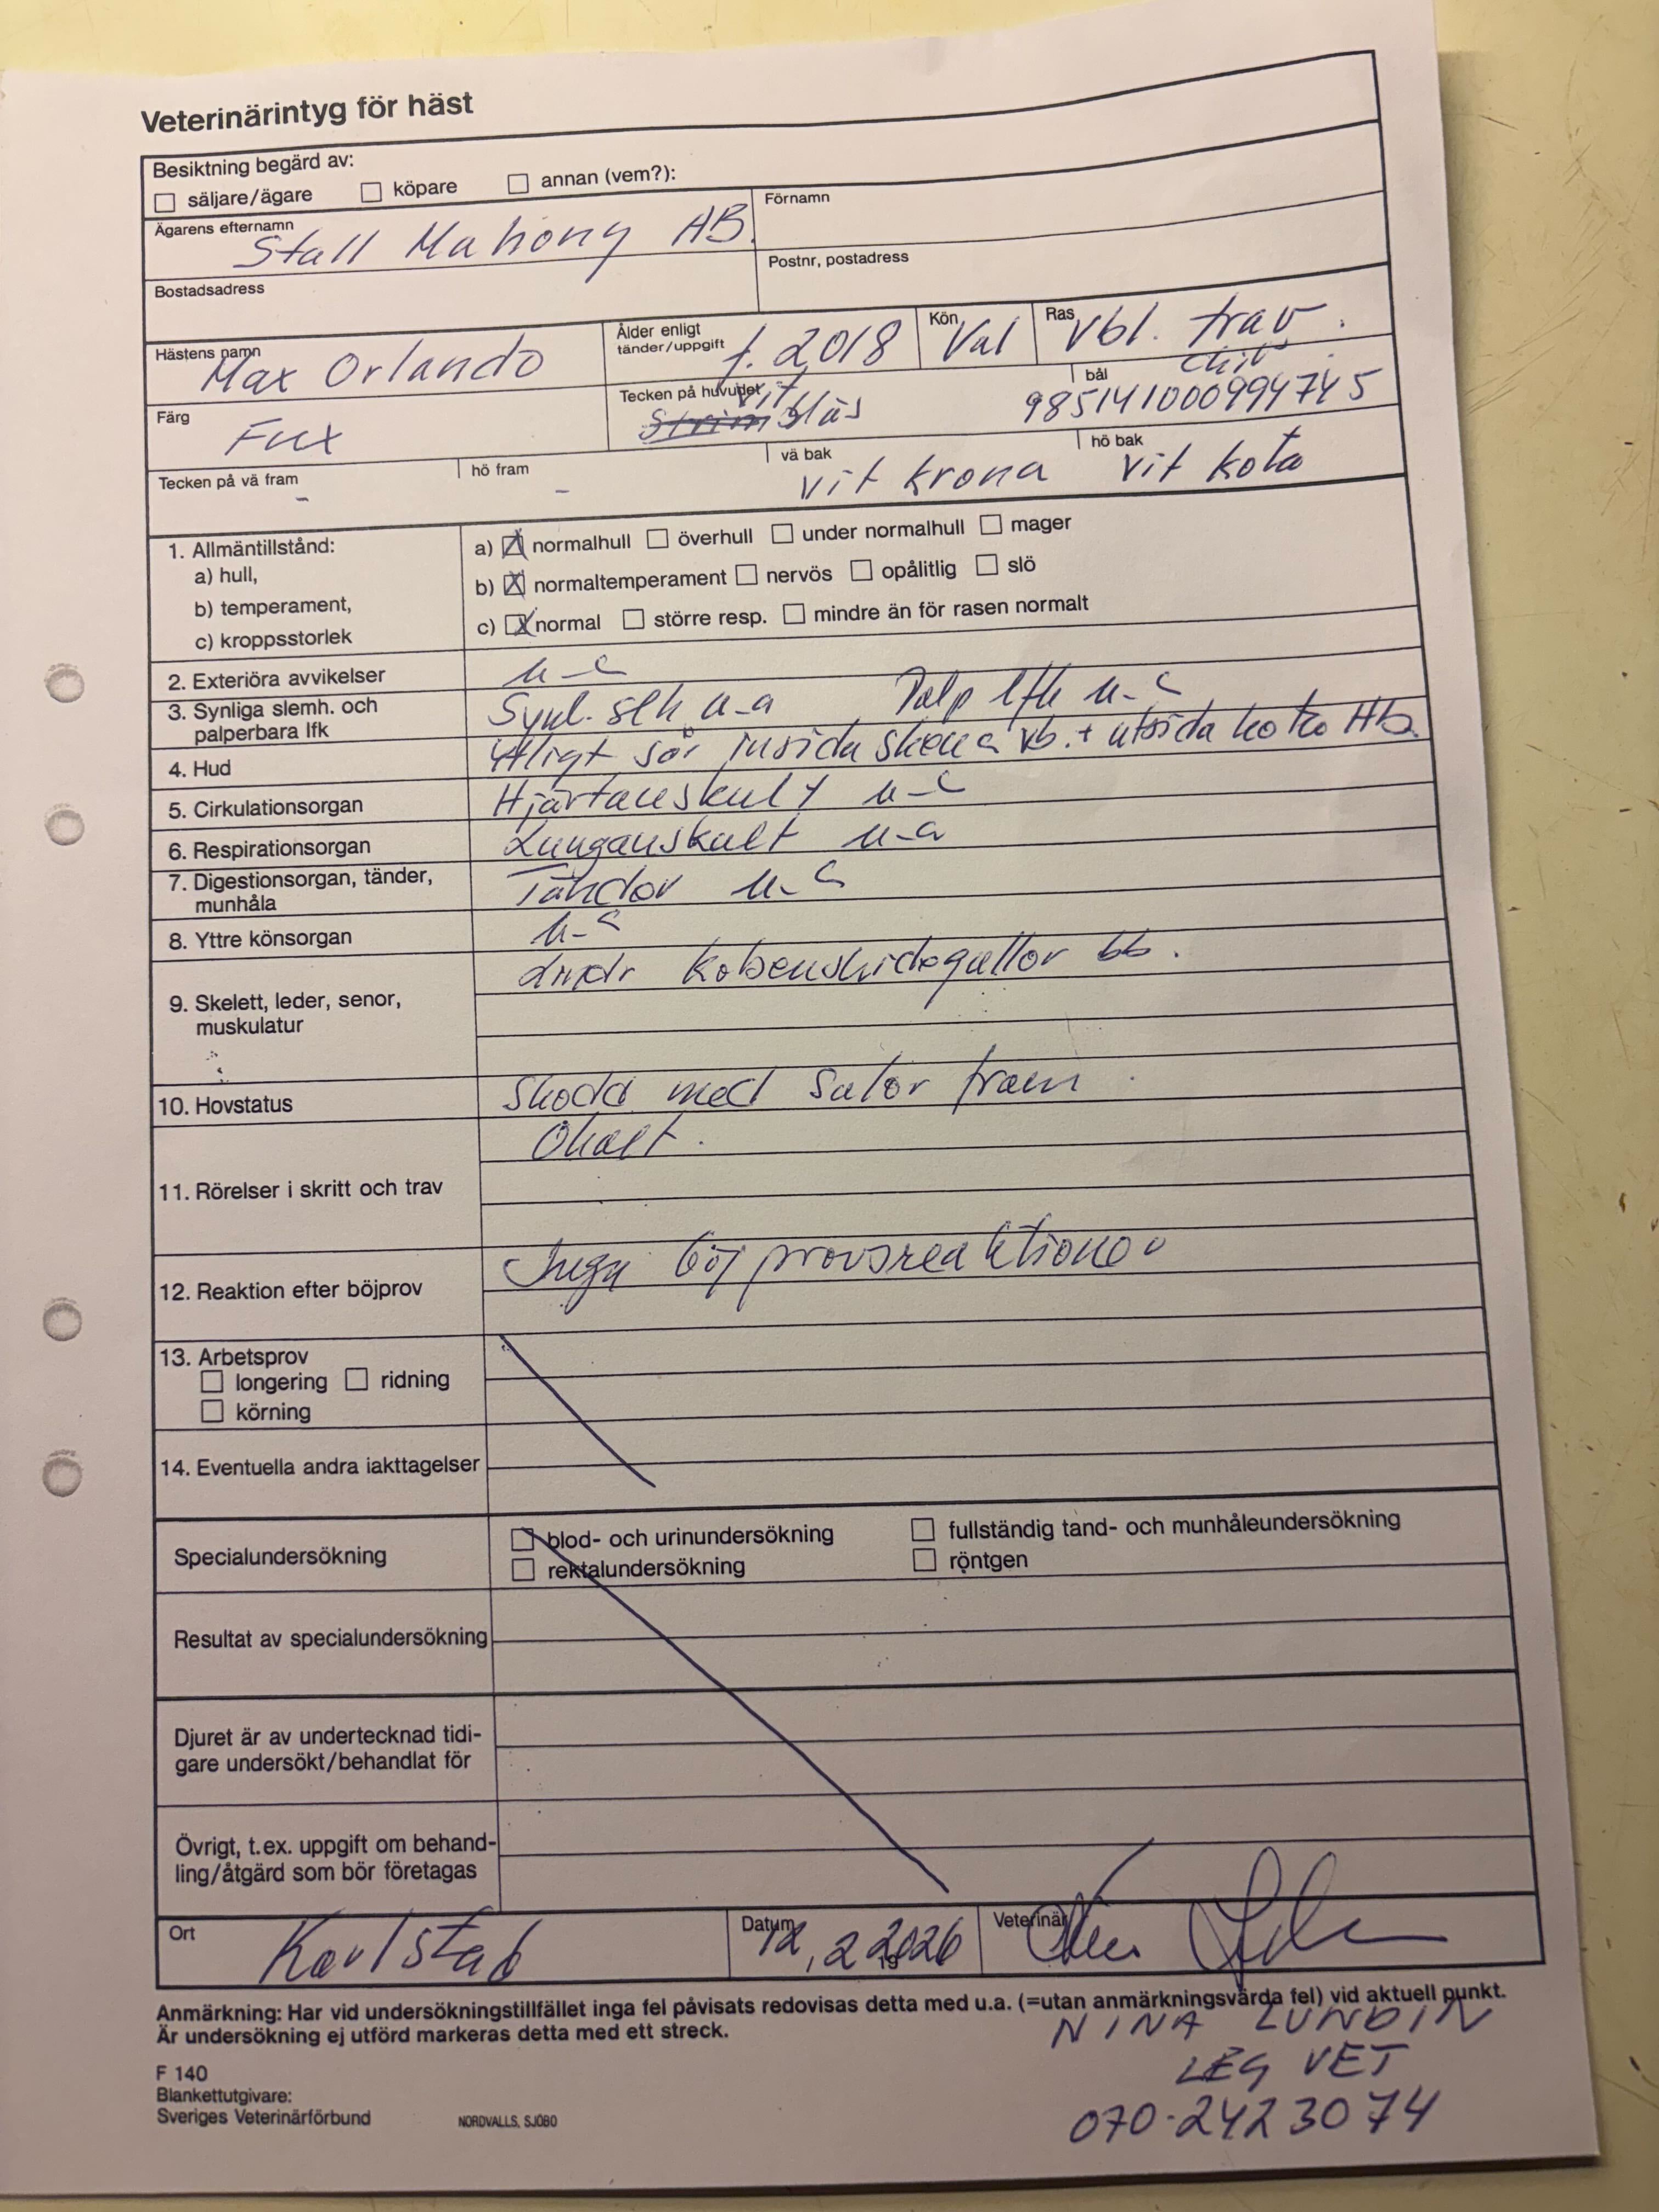 Veterinärintyg för häst
Besiktning begärd av:
säljare/ägare köpare annan (vem?):
Ägarens efternamn Förnamn
Stall Mahony AB.
Bostadsadress Postnr, postadress
Hästens namn Ålder enligt tänder/uppgift Kön Ras
Max Orlando f. 2018 Val Vbl. trav.
Färg Tecken på huvudet bål
Fux vit bläs chip 985141000994745
Tecken på vä fram hö fram vä bak hö bak
- - vit krona vit kota
1. Allmäntillstånd:
a) hull,
b) temperament,
c) kroppsstorlek
a) X normalhull överhull under normalhull mager
b) X normaltemperament nervös opålitlig slö
c) X normal större resp. mindre än för rasen normalt
2. Exteriöra avvikelser u-a
3. Synliga slemh. och palperbara lfk Synl. slh u-a Palp lfk u-a
4. Hud Ytligt sår insida skena vb. + utsida kota Hb.
5. Cirkulationsorgan Hjärtauskult u-a
6. Respirationsorgan Lungauskult u-a
7. Digestionsorgan, tänder, munhåla Tänder u-a
8. Yttre könsorgan u-a
9. Skelett, leder, senor, muskulatur lindr kobenskidegallor bb.
10. Hovstatus Skodd med sulor fram.
11. Rörelser i skritt och trav Ohalt.
12. Reaktion efter böjprov Inga böjprovsreaktioner
13. Arbetsprov
longering ridning
körning
14. Eventuella andra iakttagelser
Specialundersökning
blod- och urinundersökning fullständig tand- och munhåleundersökning
rektalundersökning röntgen
Resultat av specialundersökning
Djuret är av undertecknad tidi-
gare undersökt/behandlat för
Övrigt, t.ex. uppgift om behand-
ling/åtgärd som bör företagas
Ort Datum Veterinär
Karlstad 12, 2 2026 19
Anmärkning: Har vid undersökningstillfället inga fel påvisats redovisas detta med u.a. (=utan anmärkningsvärda fel) vid aktuell punkt.
Är undersökning ej utförd markeras detta med ett streck.
NINA LUNDIN
LEG VET
070-2423074
F 140
Blankettutgivare:
Sveriges Veterinärförbund NORDVALLS, SJÖBO